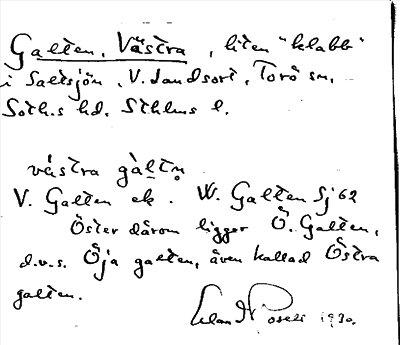 Galten, Västra, liten "klabb"
i Saltsjön, V. Landsort, Torö sn,
Soth.s hd, Sthlms l.
västra gàltn̥
V. Galten ek. W. Galten Sj 62
Öster därom ligger Ö. Galten,
d.v.s. Öja galten, även kallad Östra
galten.
1930.